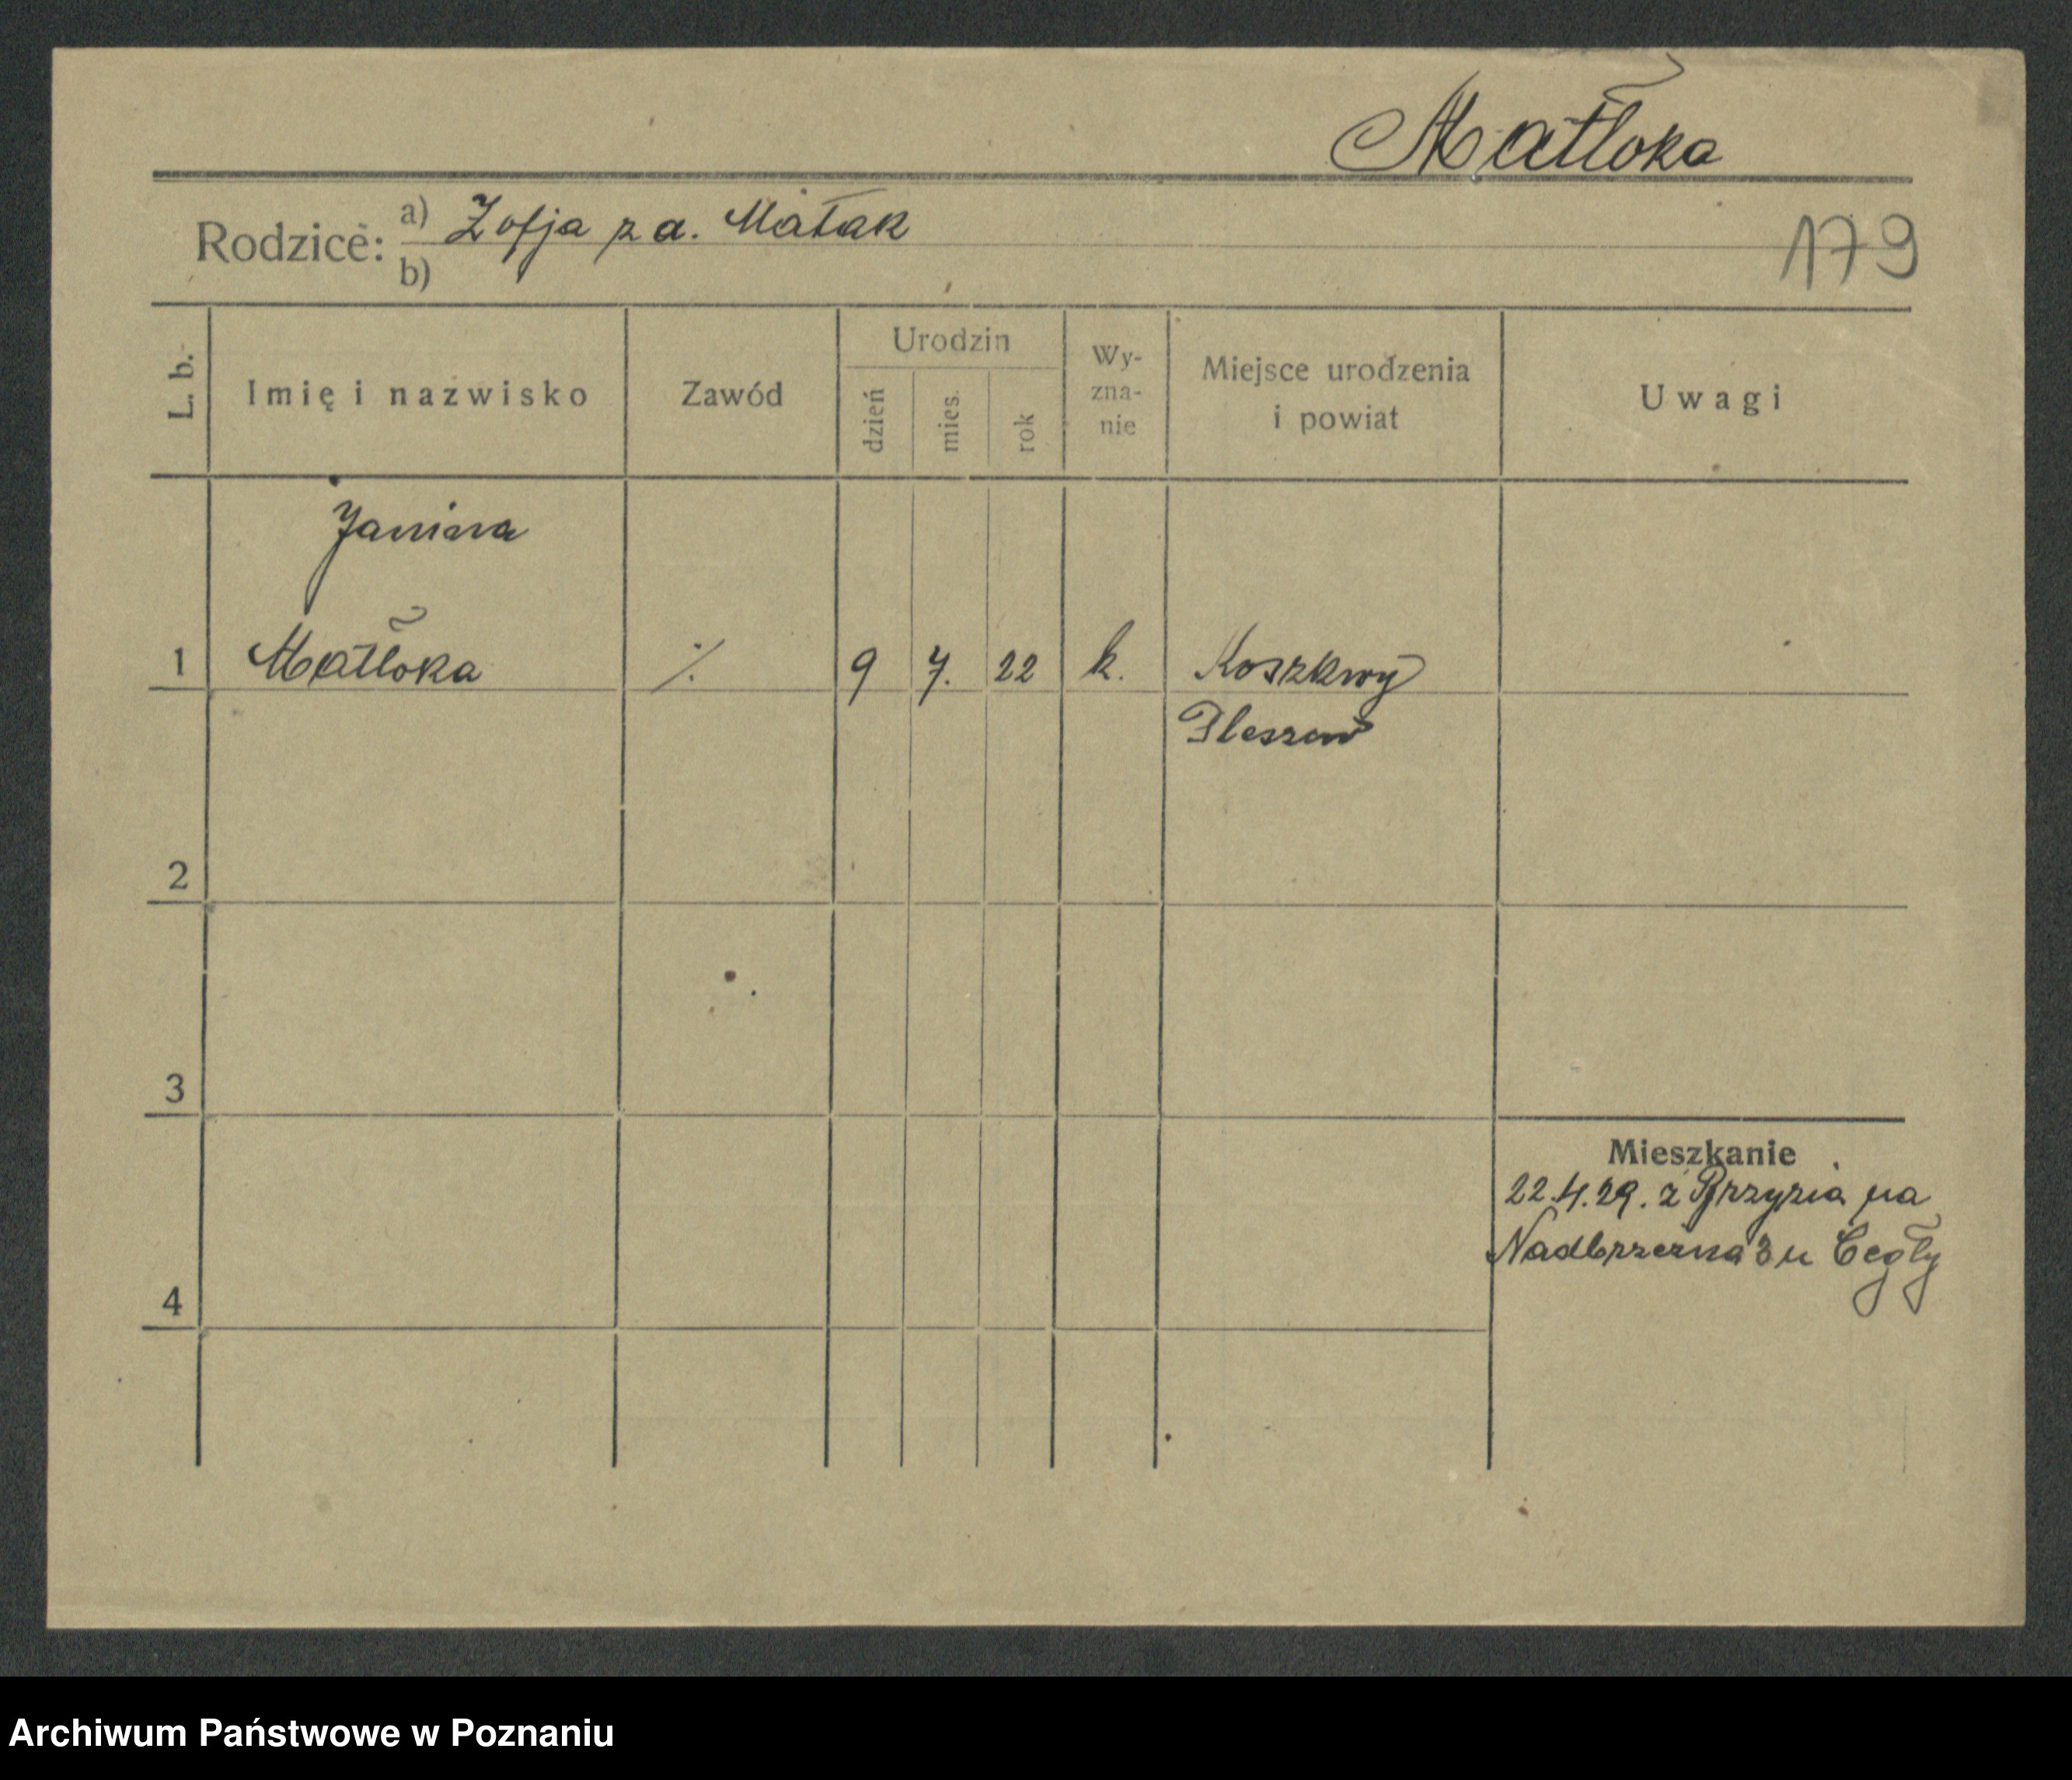 Matłoka
Rodzice: a) Zofja za. Małak
b)
179
L. b.
Imię i nazwisko
Zawód
Urodzin
dzień
mies.
rok
Wy-
zna-
nie
Miejsce urodzenia
i powiat
Uwagi
Janina
1 Matłoka ./. 9 7. 22 k. Koszkwy
Pleszew
2
3
Mieszkanie
22.4.29. z
na
Nadbrzeżna 3 u Cegły
4
Archiwum Państwowe w Poznaniu